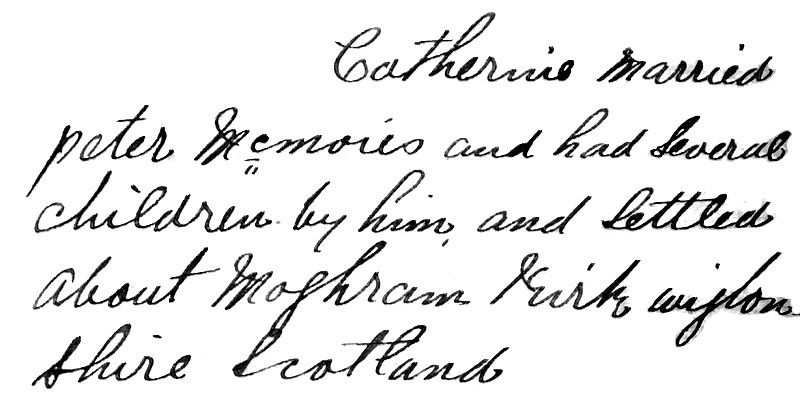 Catherine married
peter McMories and had Several
children by him, and Settled
about Moghram Kirk wigton
shire Scotland